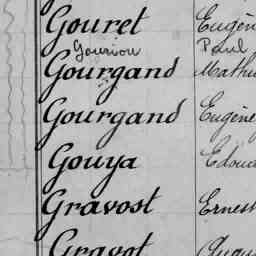 Gouret Eugèn
Gouriou Paul
Gourgand Mathu
Gourgand Eugène
Gouya Edoua
Gravost Ernest
Gravot Augus